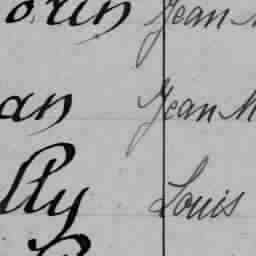 orin Jean M
an Jean M
lly Louis